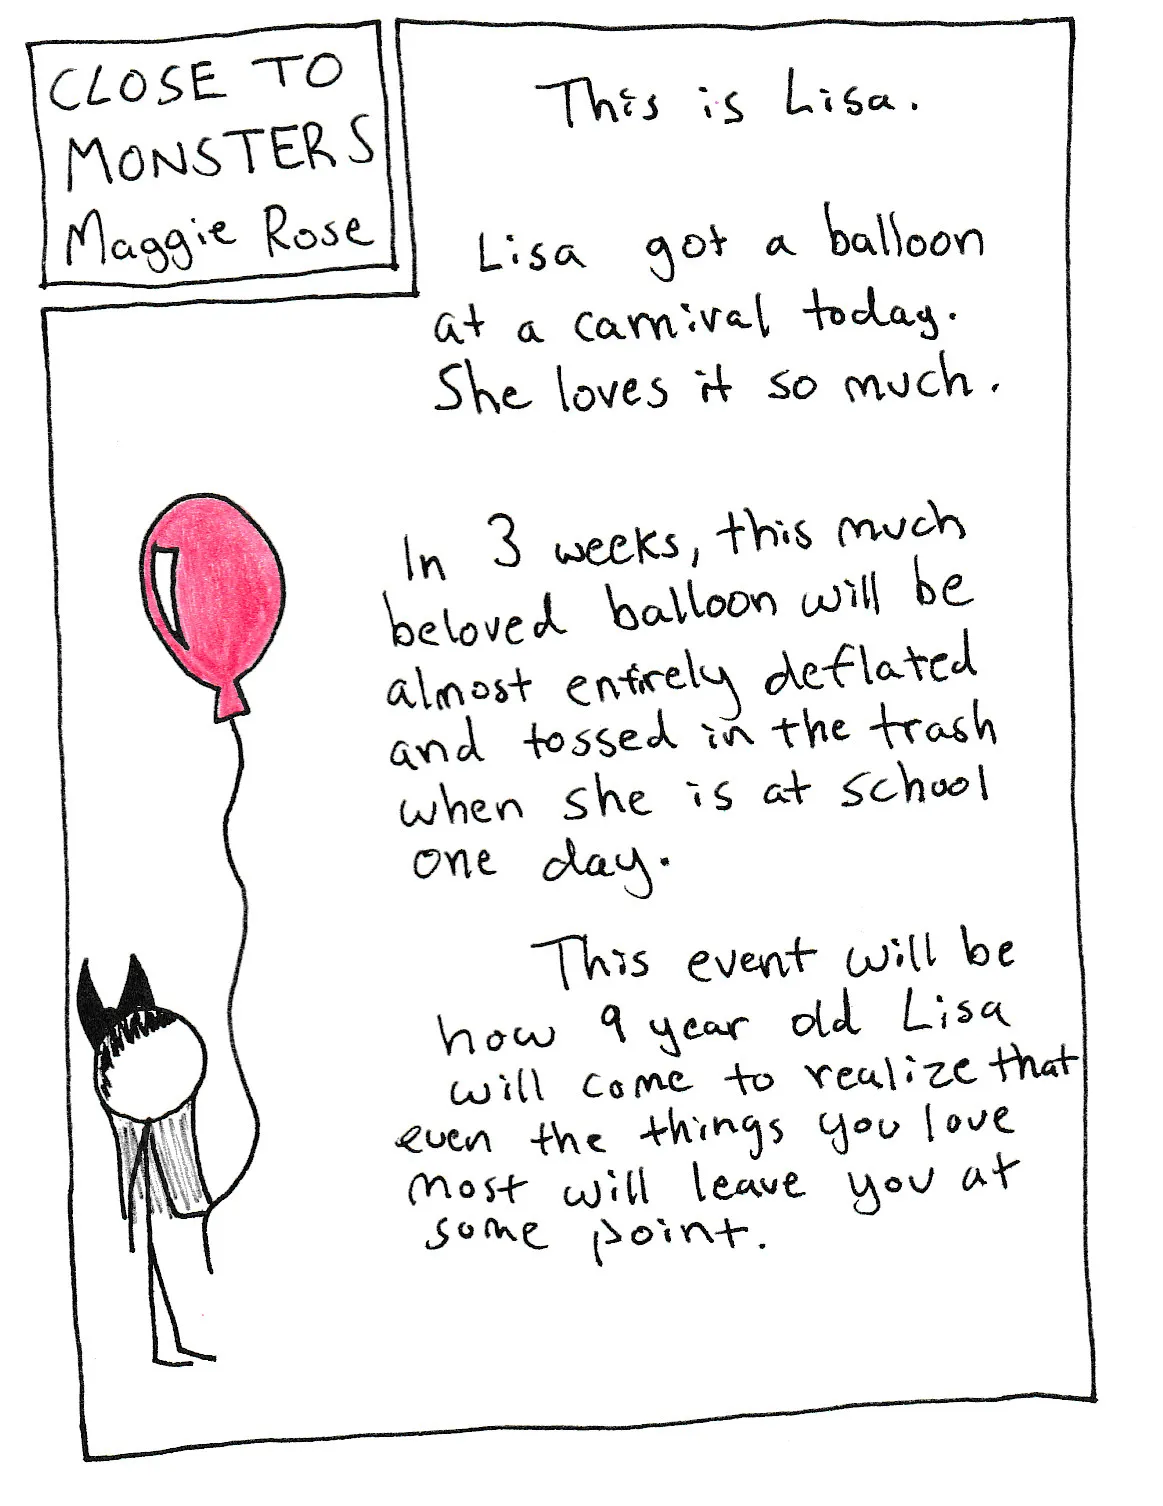 CLOSE TO
MONSTERS
Maggie Rose
This is Lisa.
Lisa got a balloon
at a carnival today.
She loves it so much.
In 3 weeks, this much
beloved balloon will be
almost entirely deflated
and tossed in the trash
when she is at school
one day.
This event will be
how 9 year old Lisa
will come to realize that
even the things you love
most will leave you at
some point.